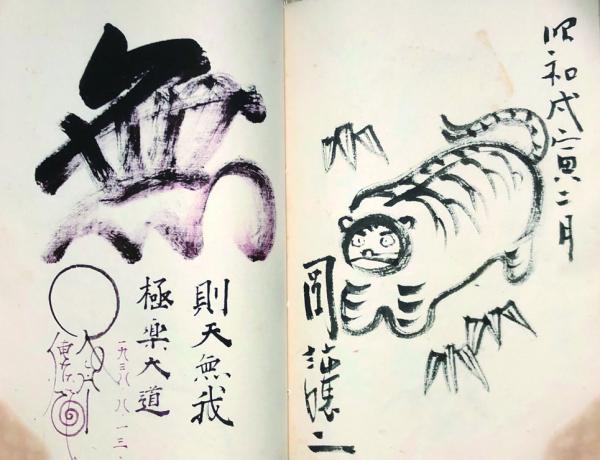 昭和戊寅二月
無
則天無我
極樂大道
一九三八、八、一三、